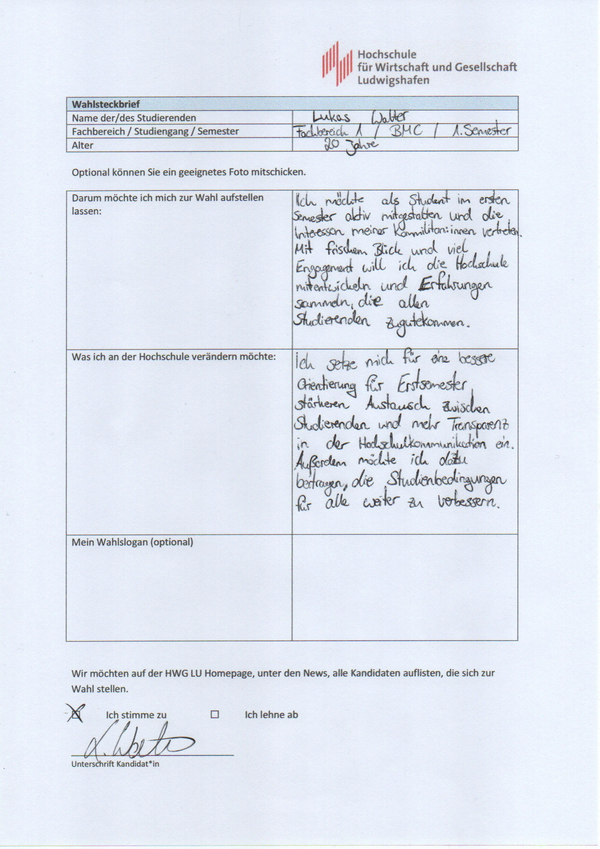 Hochschule
für Wirtschaft und Gesellschaft
Ludwigshafen
Wahlsteckbrief
Name der/des Studierenden Lukas Walter
Fachbereich / Studiengang / Semester Fachbereich 1 / BMC / 1. Semester
Alter 20 Jahre
Optional können Sie ein geeignetes Foto mitschicken.
Darum möchte ich mich zur Wahl aufstellen
lassen:
Ich möchte als Student im ersten
Semester aktiv mitgestalten und die
Interessen meiner Kommiliton:innen vertreten.
Mit frischem Blick und viel
Engagement will ich die Hochschule
mitentwickeln und Erfahrungen
sammeln, die allen
Studierenden zugutekommen.
Was ich an der Hochschule verändern möchte:
Ich setze mich für eine bessere
Orientierung für Erstsemester,
stärkeren Austausch zwischen
Studierenden und mehr Transparenz
in der Hochschulkommunikation ein.
Außerdem möchte ich dazu
beitragen, die Studienbedingungen
für alle weiter zu verbessern.
Mein Wahlslogan (optional)
Wir möchten auf der HWG LU Homepage, unter den News, alle Kandidaten auflisten, die sich zur
Wahl stellen.
Ich stimme zu Ich lehne ab
L. Walter
Unterschrift Kandidat*in